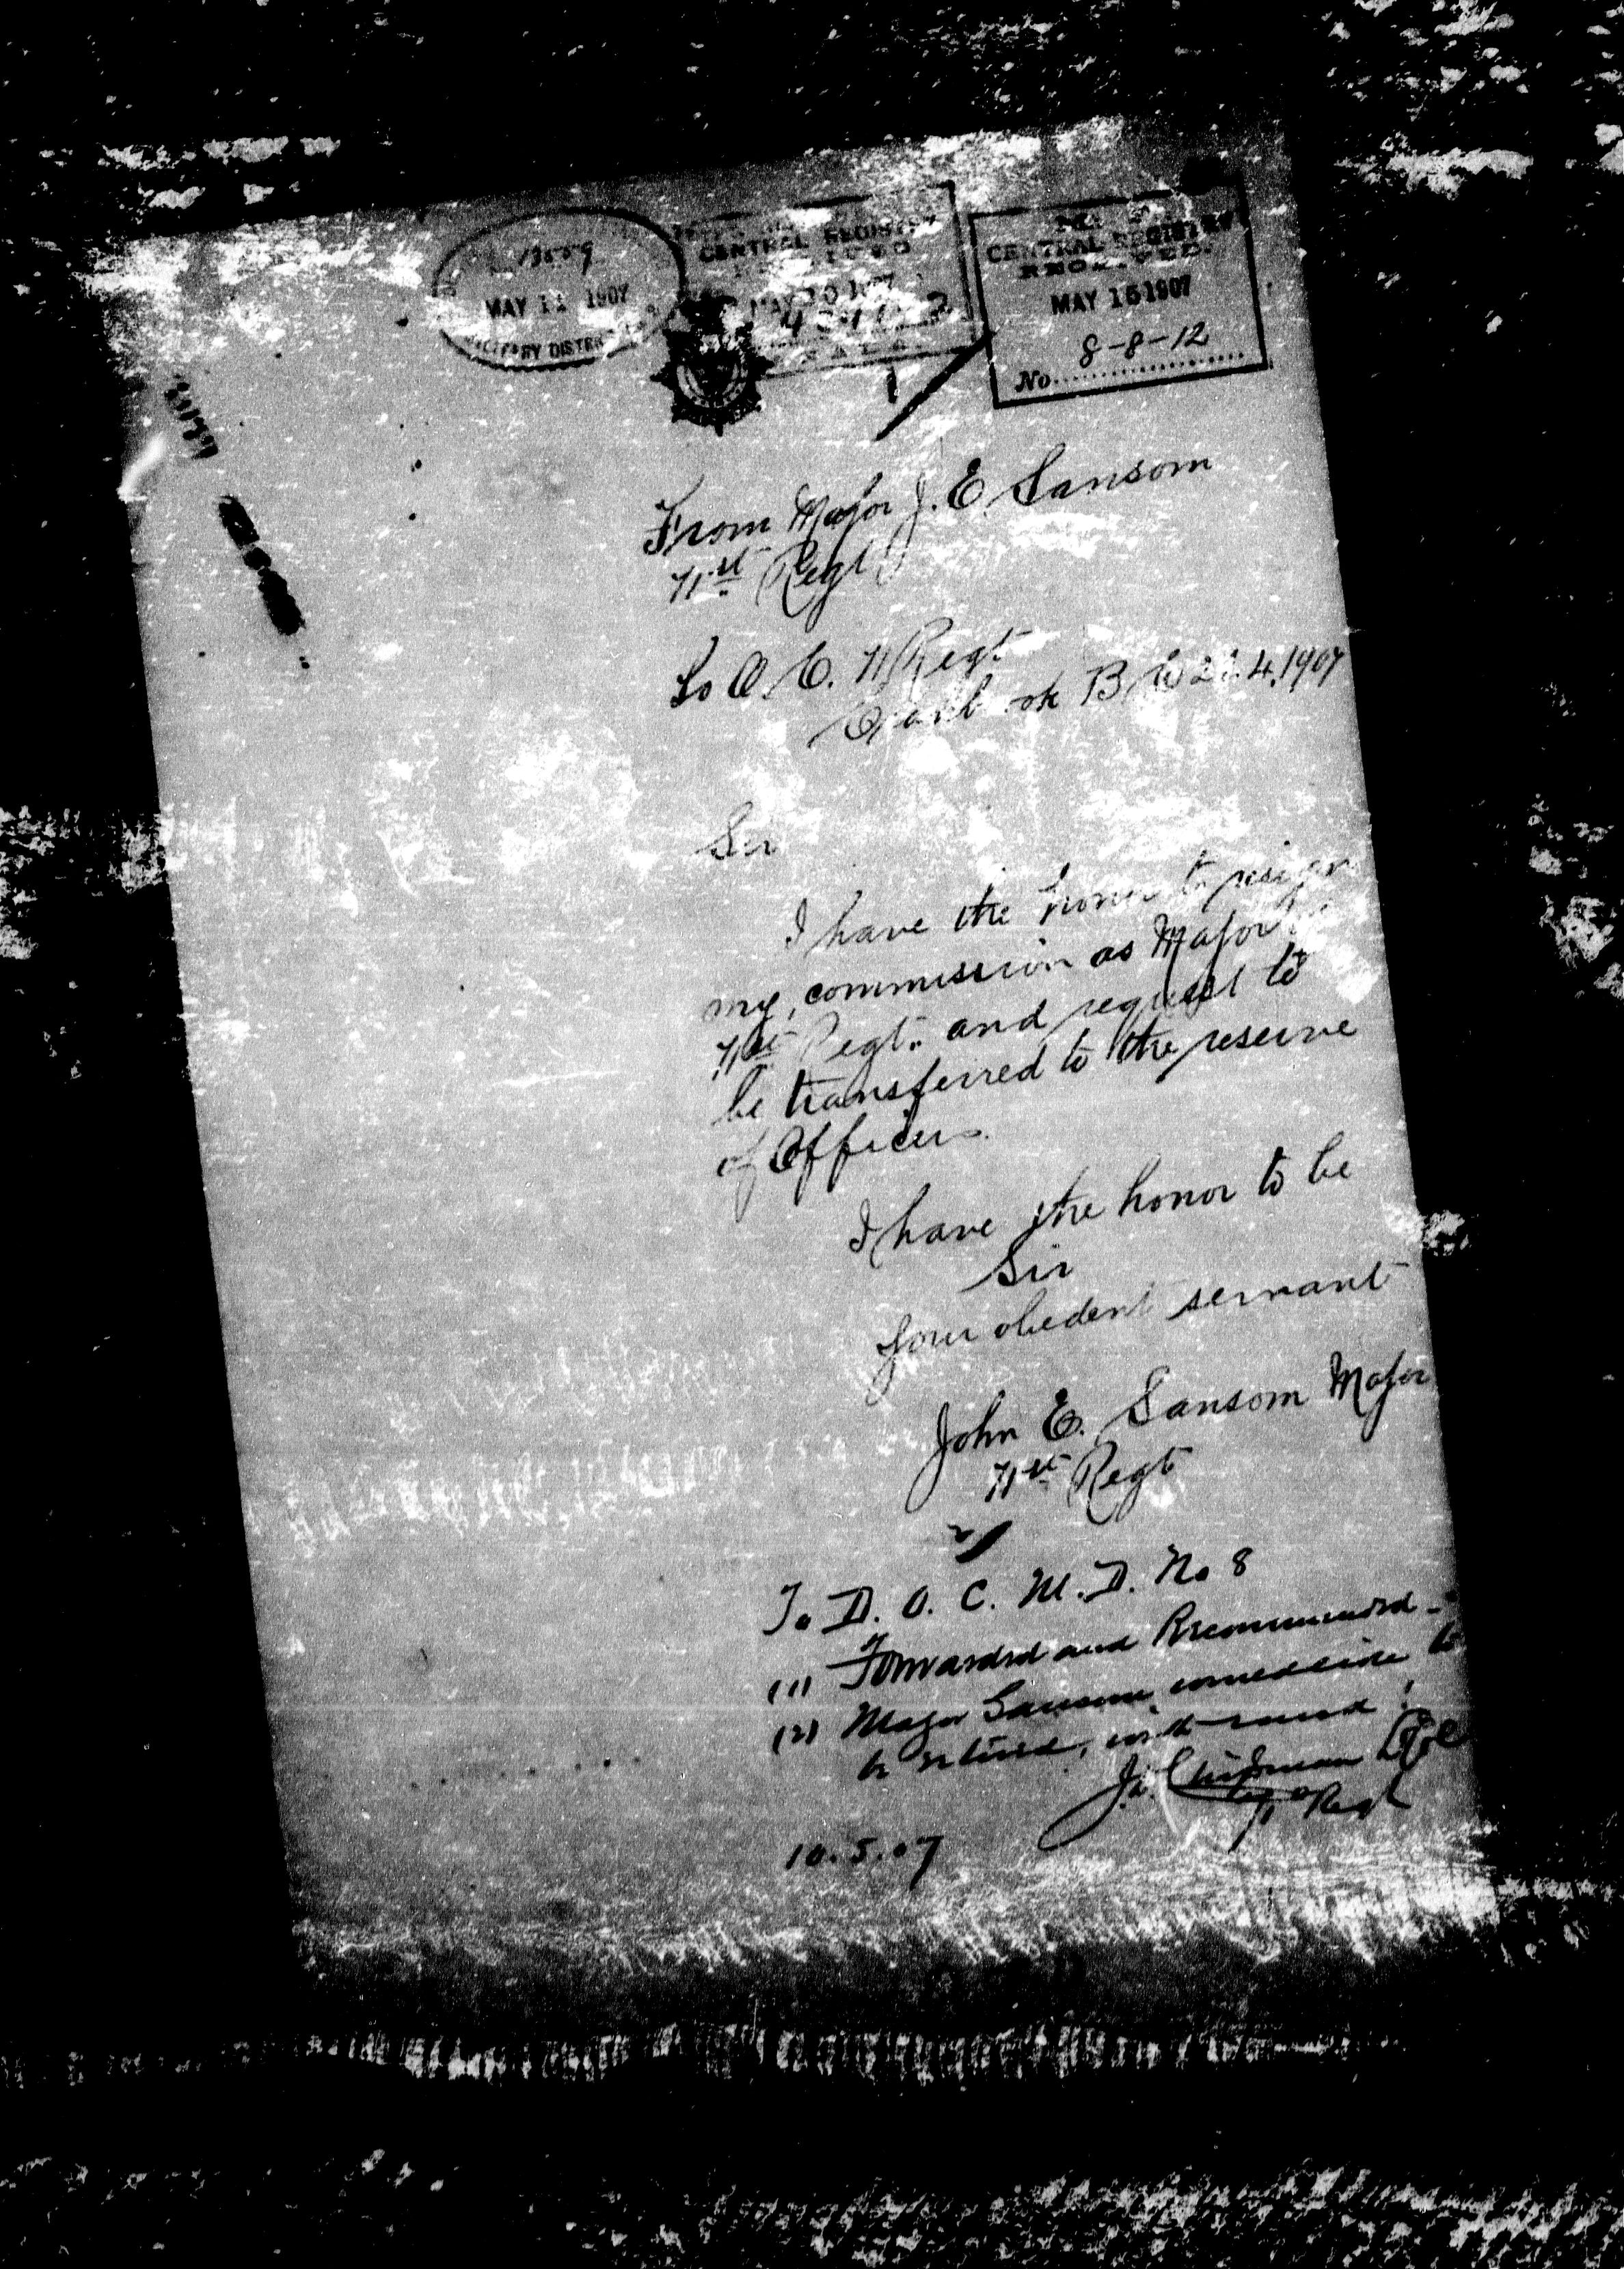 13559
MAY 11 1907
MILITARY DISTR
CENTRAL REGISTRY
CENTRAL REGISTRY
RECEIVED.
MAY 15 1907
8-8-12
No.
From Major J. E. Sansom
71st Regt
To O. C. 71 Regt
B. C. 4.1907
Sir
I have the honor to resign
my commission as Major
71st Regt. and request to
be transferred to the reserve
of Officers.
I have the honor to be
Sir
Your obedent servant
John E. Sansom Major
71st Regt
2/
To D. O. C. M. D. No 8
(1) Forwarded and Recommended
(2) Major Sansom to
be retired, with rank
J. D. Chipman
71st Regt
10.5.07